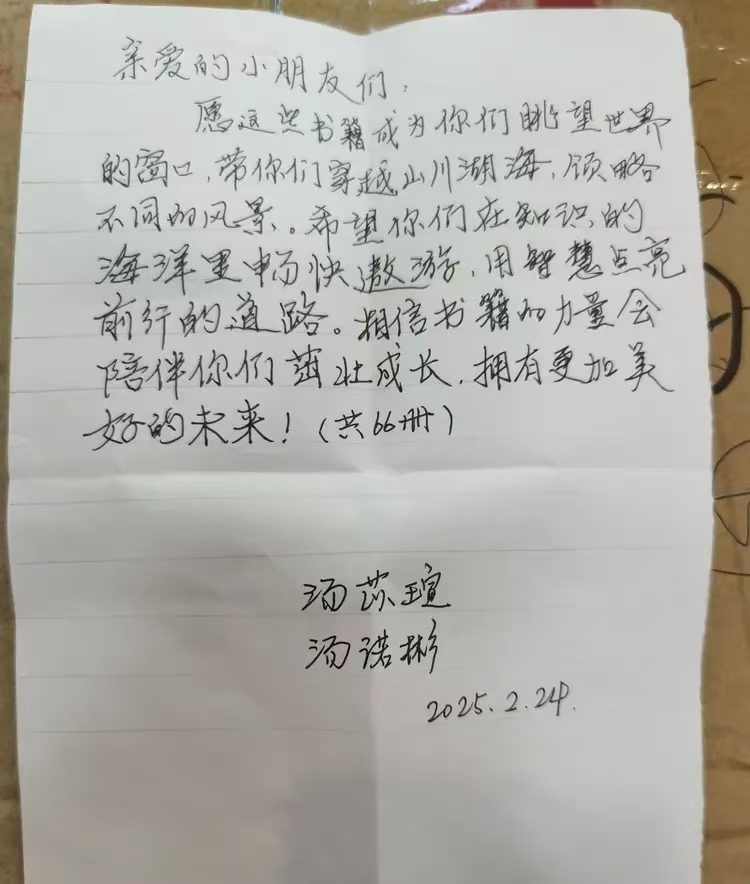 亲爱的小朋友们：
愿这些书籍成为你们眺望世界
的窗口，带你们穿越山川湖海，领略
不同的风景。希望你们在知识的
海洋里畅快遨游，用智慧点亮
前行的道路。相信书籍的力量会
陪伴你们茁壮成长，拥有更加美
好的未来！（共66册）
汤苏瑄
汤诺彬
2025.2.24.